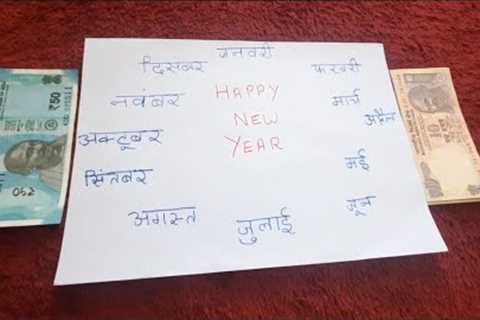 जनवरी
फरवरी
मार्च
अप्रैल
मई
जून
जुलाई
अगस्त
सितंबर
अक्टूबर
नवंबर
दिसंबर
HAPPY
NEW
YEAR
₹50
10